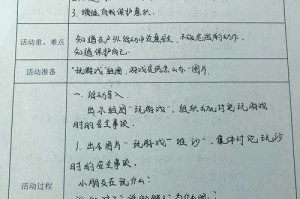 3. 增强自我保护意识。
活动重、难点
知道在户外活动中注意安全,不做危险的动作。
知道保护自己。
活动准备
"玩游戏"组图,游戏变成怎么办"图片。
一. 活动导入
出示组图"玩游戏",组织幼儿讨论玩游戏
时的安全事项。
1. 出示图片"玩游戏-堆沙",集体讨论玩沙
时的安全事项。
活动过程
小朋友在玩什么?